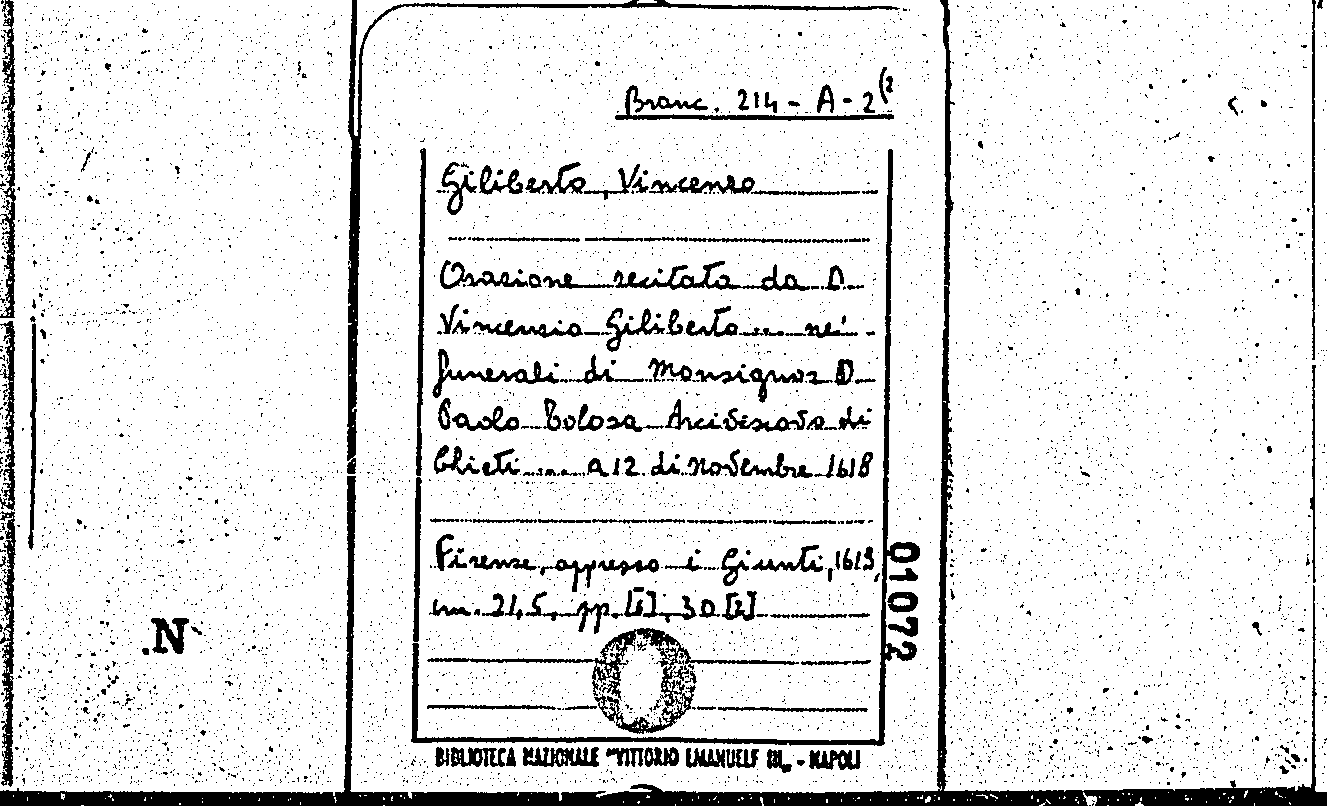 Branc. 214 - A - 2(2
Giliberto, Vincenzo
Orazione recitata da D.
Vincenzio Giliberto ... ne'
funerali di Monsignor D.
Paolo Tolosa Arcivescovo di
Chieti .... a 12 di novembre 1618
Firenze, appresso i Giunti, 1619,
cm. 21,5, pp. [6], 30 [2]
01072
.N
BIBLIOTECA NAZIONALE "VITTORIO EMANUELE III" - NAPOLI